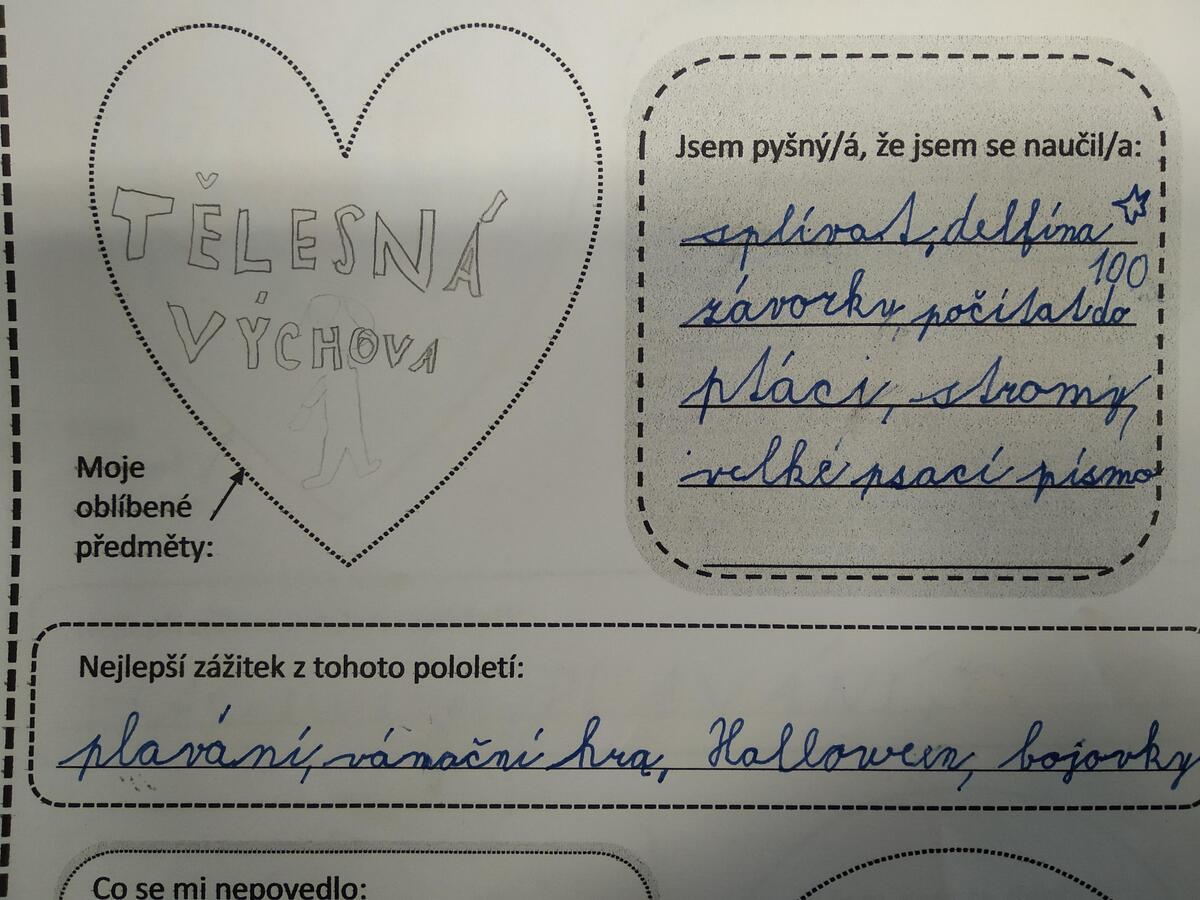 TĚLESNÁ
VÝCHOVA
Moje
oblíbené
předměty:
Jsem pyšný/á, že jsem se naučil/a:
splívat, delfína
závorky počítat do 100
ptáci, stromy,
velké psací písmo
Nejlepší zážitek z tohoto pololetí:
plavání, vánoční hra, Halloween, bojovky
Co se mi nepovedlo: